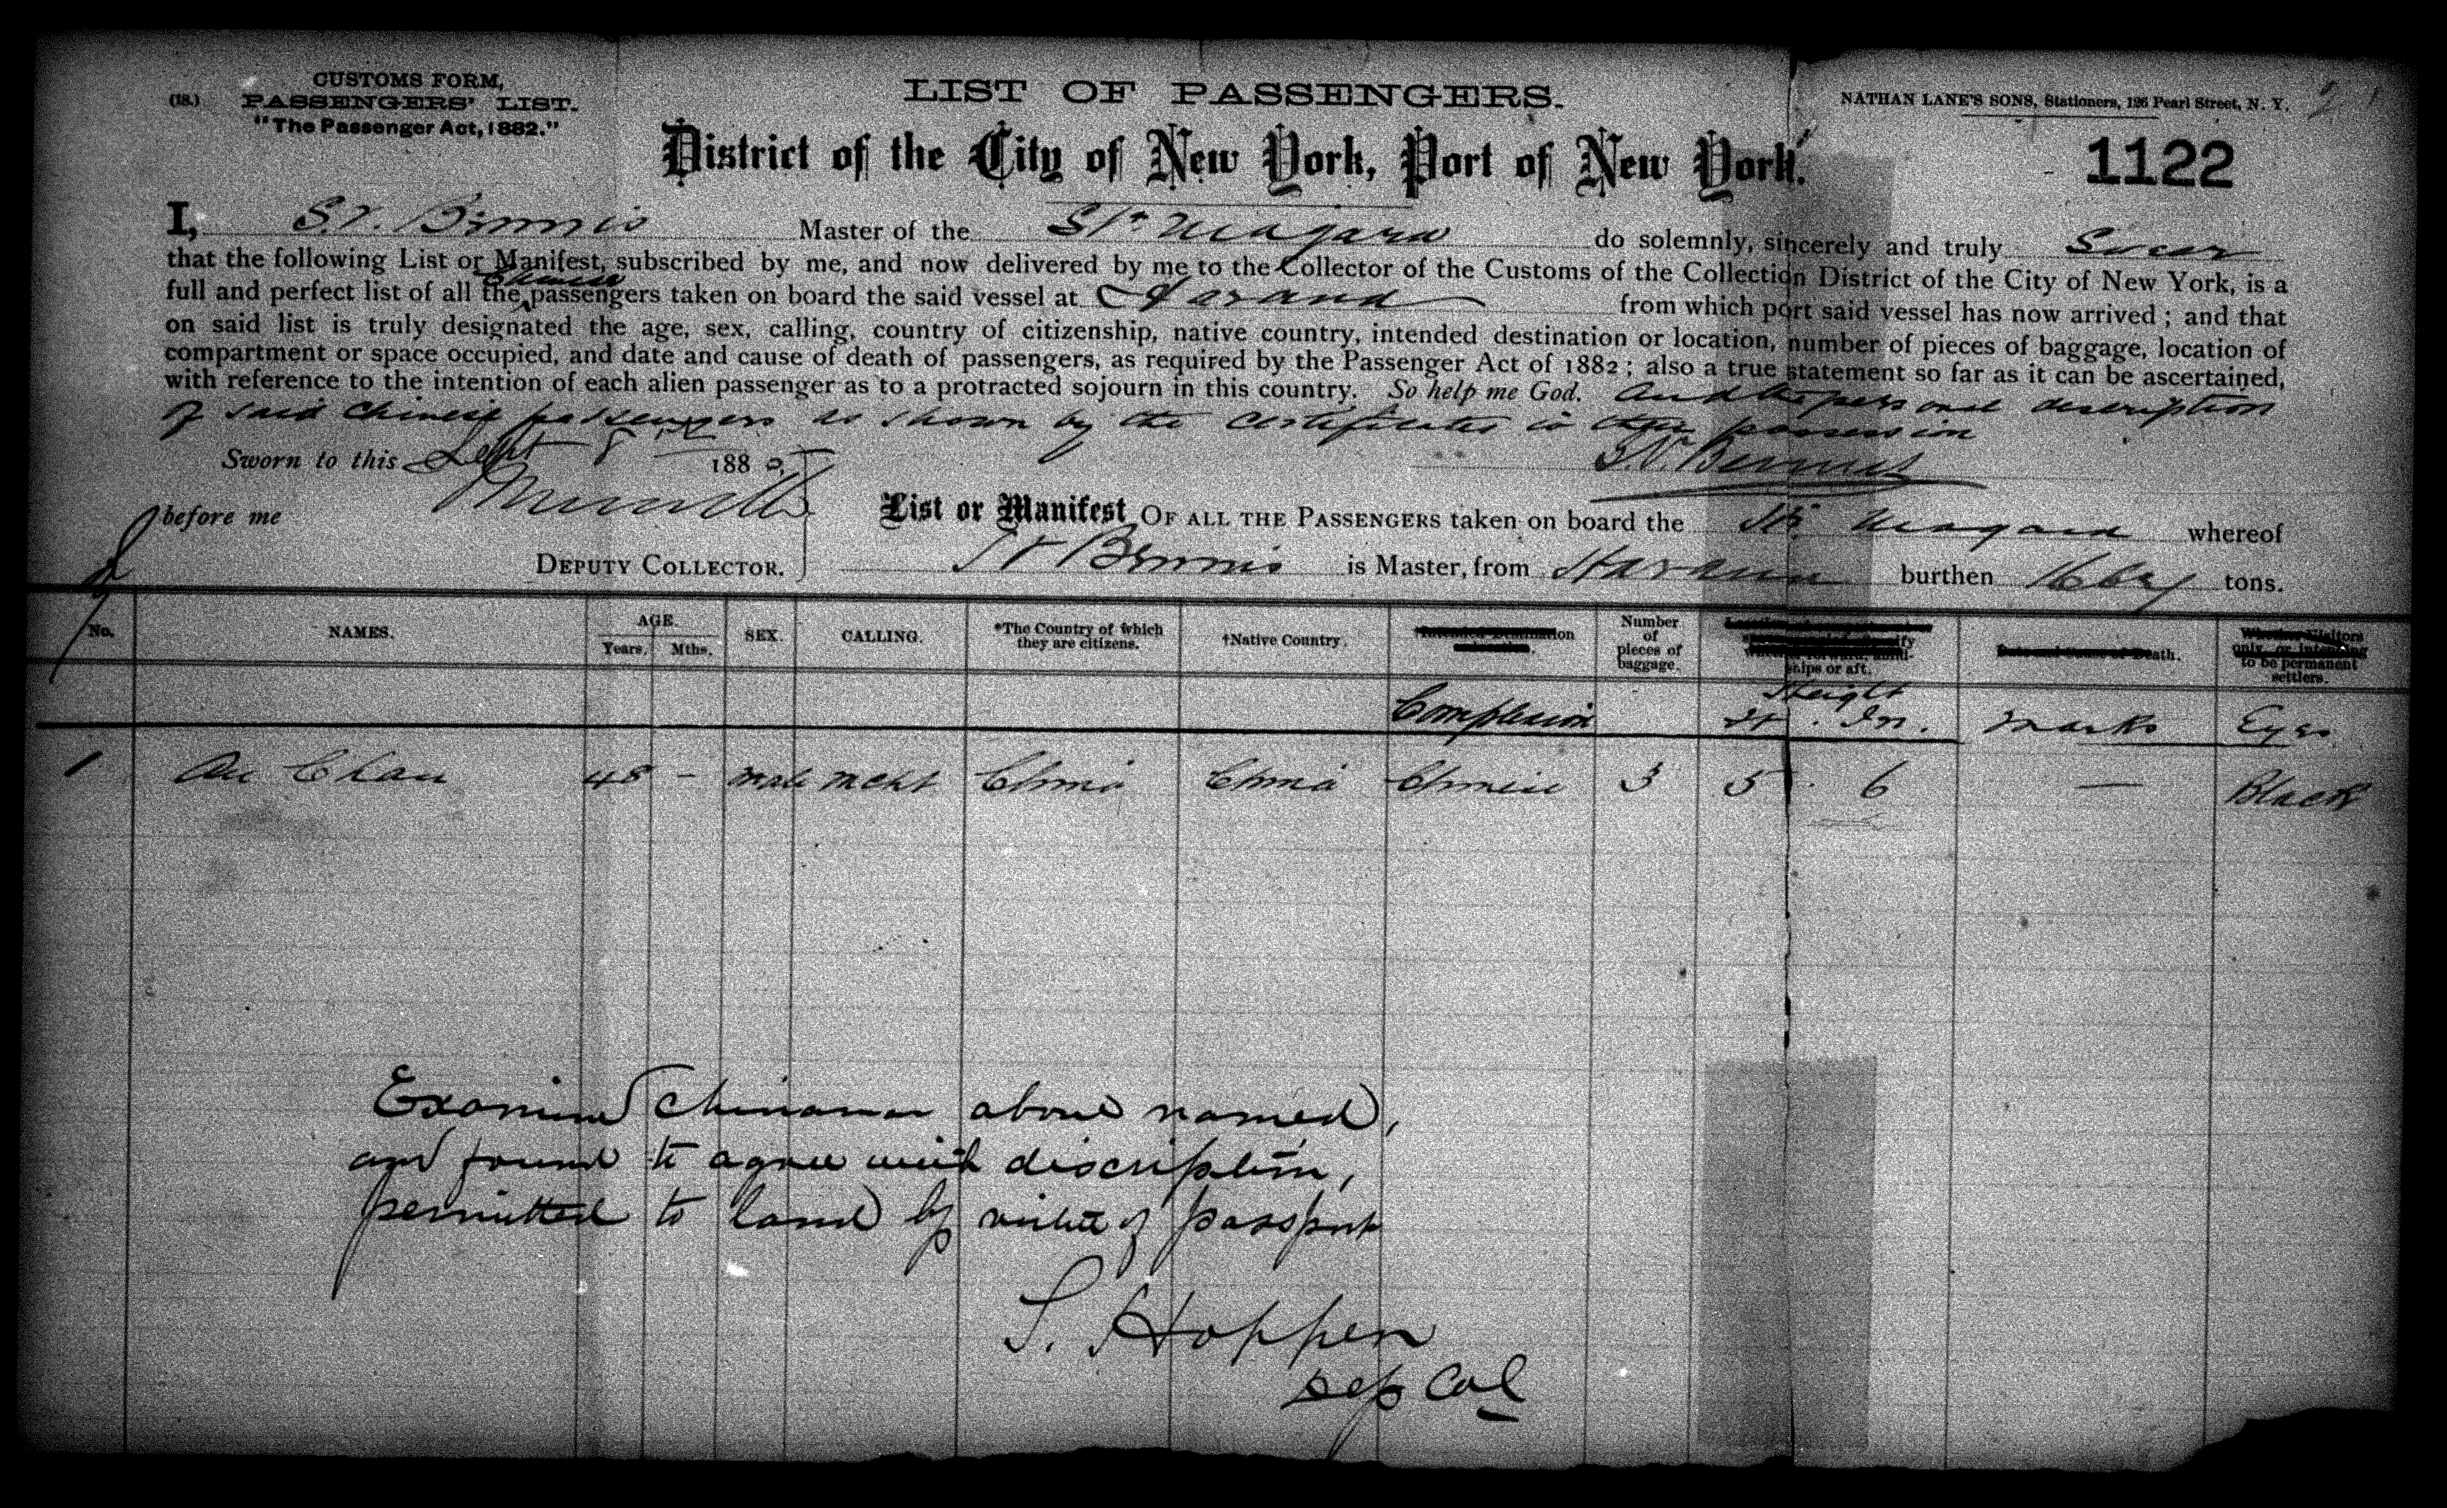 CUSTOMS FORM,
(18.) PASSENGERS' LIST.
"The Passenger Act, 1882."
LIST OF PASSENGERS.
NATHAN LANE'S SONS, Stationers, 126 Pearl Street, N. Y.
District of the City of New York, Port of New York.
1122
I, S. V. Bennis Master of the Str Niagara do solemnly, sincerely and truly Swear
that the following List or Manifest, subscribed by me, and now delivered by me to the Collector of the Customs of the Collection District of the City of New York, is a
full and perfect list of all the Chinese passengers taken on board the said vessel at Havana from which port said vessel has now arrived; and that
on said list is truly designated the age, sex, calling, country of citizenship, native country, intended destination or location, number of pieces of baggage, location of
compartment or space occupied, and date and cause of death of passengers, as required by the Passenger Act of 1882; also a true statement so far as it can be ascertained,
with reference to the intention of each alien passenger as to a protracted sojourn in this country. So help me God. And the personal description
of said Chinese passengers as shown by the Certificates in their possession
Sworn to this Sept 8 188
S. V. Bennis
before me
DEPUTY COLLECTOR.
List or Manifest OF ALL THE PASSENGERS taken on board the Str Niagara whereof
S V Bennis is Master, from Havana burthen tons.
No. NAMES. AGE. Years. Mths. SEX. CALLING. *The Country of which they are citizens. †Native Country. Number of pieces of baggage. ships or aft. Death. Whether Visitors only, or intending to be permanent settlers.
Complexion Height Ft. In. Marks Eyes
1 Au Chau 48 - male mcht China China Chinese 3 5 6 — Black
Examined Chinaman above named,
and found to agree with discription,
permitted to land by virtue of passport
S. Hoppen
Dep Col